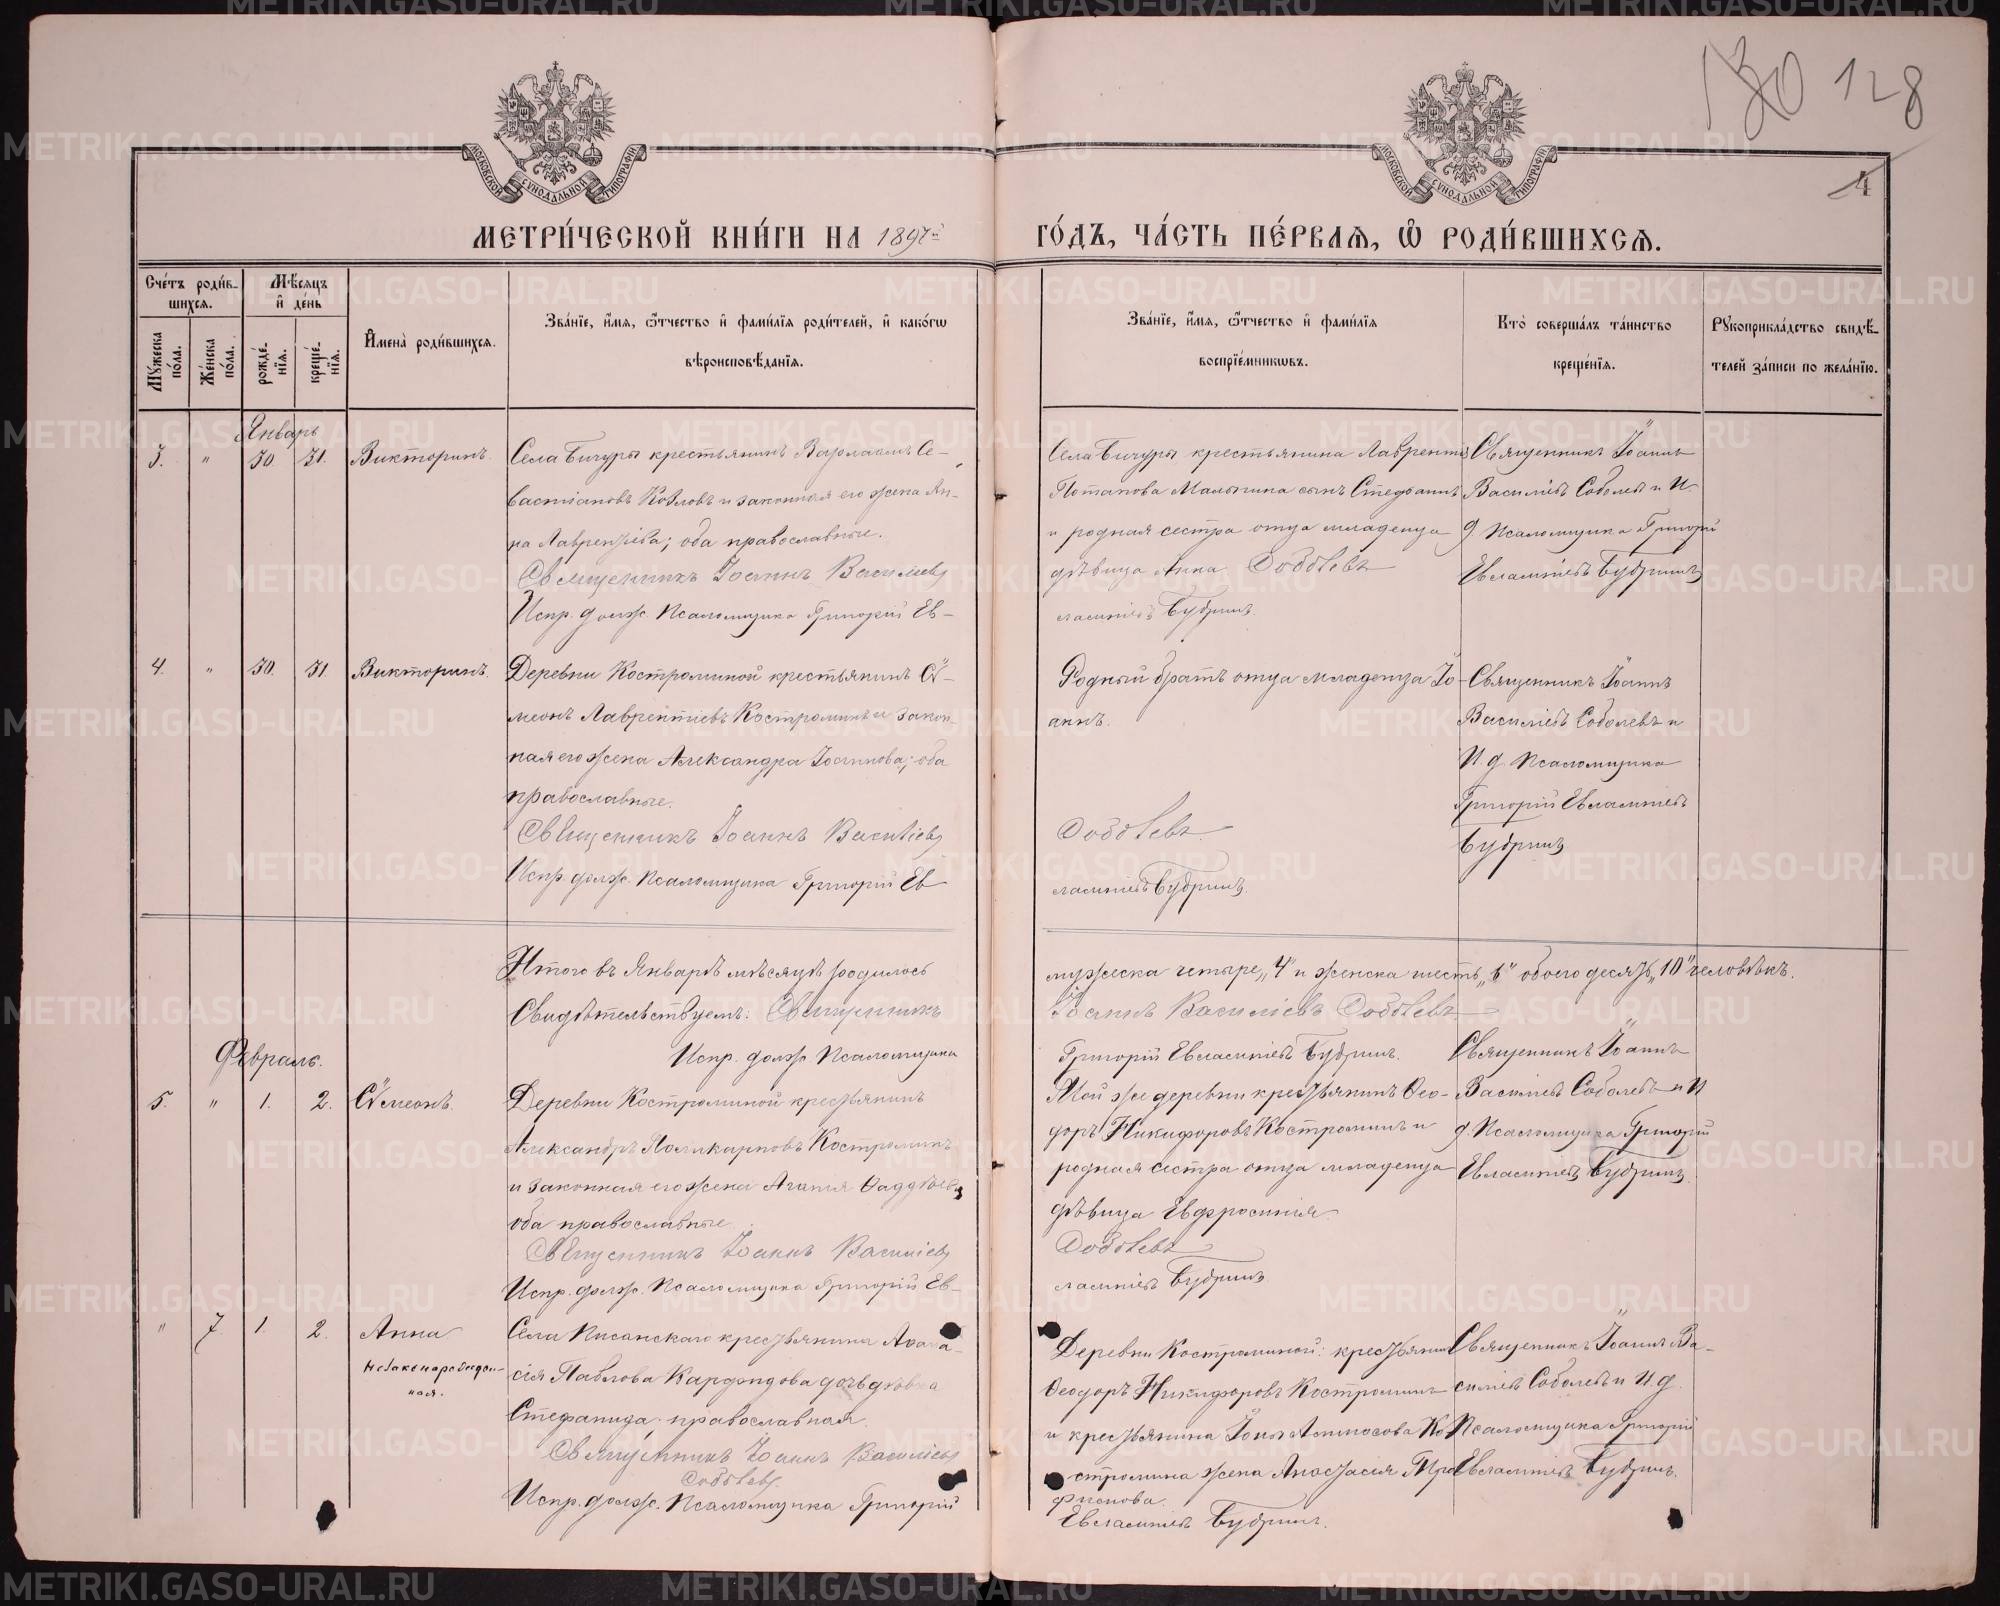 130 128
4
МОСКОВСКОЙ СѴНОДАЛЬНОЙ ТИПОГРАФІИ
МОСКОВСКОЙ СѴНОДАЛЬНОЙ ТИПОГРАФІИ
МЕТРИ́ЧЕСКОЙ КНИ́ГИ НА 1897й
ГО́ДЪ, ЧА́СТЬ ПЕ́РВАѦ, Ѡ РОДИ́ВШИХСѦ.
Сче́тъ роди́в-
шихсѧ.
Мѣ́сѧцъ
и҆ де́нь
Мꙋ́жеска
по́ла.
Же́нска
по́ла.
рожде́-
нїѧ.
креще́-
нїѧ.
И҆мена̀ роди́вшихсѧ.
Зва́нїе, и҆́мѧ, ѻ҆́тчество и҆ фами́лїѧ роди́телей, и҆ како́гѡ
вѣроисповѣ́данїѧ.
Зва́нїе, и҆́мѧ, ѻ҆́тчество и҆ фами́лїѧ
воспрїе́мникѡвъ.
Кто̀ соверша́лъ та́инство
креще́нїѧ.
Рꙋкоприкла́дство свидѣ́-
телей за́писи по жела́нїю.
Январь
3. " 30. 31. Викторинъ.
Села Бичуры крестьянинъ Варлаамъ Се-
вастіановъ Козловъ и законная его жена Ан-
на Лаврентіева; оба православные.
Священникъ Іоаннъ Василіевъ
Испр. долж. Псаломщика Григорій Ев-
Села Бичуры крестьянина Лаврентія
Потапова Малыгина сынъ Стефанъ
и родная сестра отца младенца
дѣвица Анна Соболевъ
лампіевъ Бубринъ.
Священникъ Іоаннъ
Василіевъ Соболевъ и И.
д. Псаломщика Григорій
Евлампіевъ Бубринъ
4. " 30. 31. Викторинъ.
Деревни Костроминой крестьянинъ Сѵ-
меонъ Лаврентіевъ Костроминъ и закон-
ная его жена Александра Іоаннова; оба
православные.
Священникъ Іоаннъ Василіевъ
Испр. долж. Псаломщика Григорій Ев
Родный братъ отца младенца Іо-
аннъ.
Соболевъ.
лампіевъ Бубринъ.
Священникъ Іоаннъ
Василіевъ Соболевъ и
И. д. Псаломщика
Григорій Евлампіевъ
Бубринъ
Итого въ Январѣ мѣсяцѣ родилось
мужеска четыре „4" и женска шесть „6" обоего десять „10" человѣкъ.
Свидѣтельствуемъ: Священникъ
Іоаннъ Василіевъ Соболевъ
Испр. долж. Псаломщика
Григорій Евлампіевъ Бубринъ.
Февраль.
5. " 1. 2. Сѵмеонъ.
Деревни Костроминой крестьянинъ
Александръ Поликарповъ Костроминъ
и законная его жена Агапія Ѳаддѣева
оба православные.
Священникъ Іоаннъ Василіевъ
Испр. долж. Псаломщика Григорій Ев-
Той же деревни крестьянинъ Ѳео-
доръ Никифоровъ Костроминъ и
родная сестра отца младенца
дѣвица Евфросинія
Соболевъ
лампіевъ Бубринъ
Священникъ Іоаннъ
Василіевъ Соболевъ и И
д. Псаломщика Григорій
Евлампіевъ Бубринъ.
" 7 1. 2. Анна
незаконорожден-
ная.
Села Писанскаго крестьянина Аѳана-
сія Павлова Карфидова дочь дѣвка
Стефанида православная.
Священникъ Іоаннъ Василіевъ
Соболевъ.
Испр. долж. Псаломщика Григорій
Деревни Костроминой: крестьянинъ
Ѳеодоръ Никифоровъ Костроминъ
и крестьянина Іоны Амосова Ко
стромина жена Анастасія Тре
филова.
Евлампіевъ Бубринъ.
Священникъ Іоаннъ Ва-
силіевъ Соболевъ и И д.
Псаломщика Григорій
Евлампіевъ Бубринъ.
METRIKI.GASO-URAL.RU